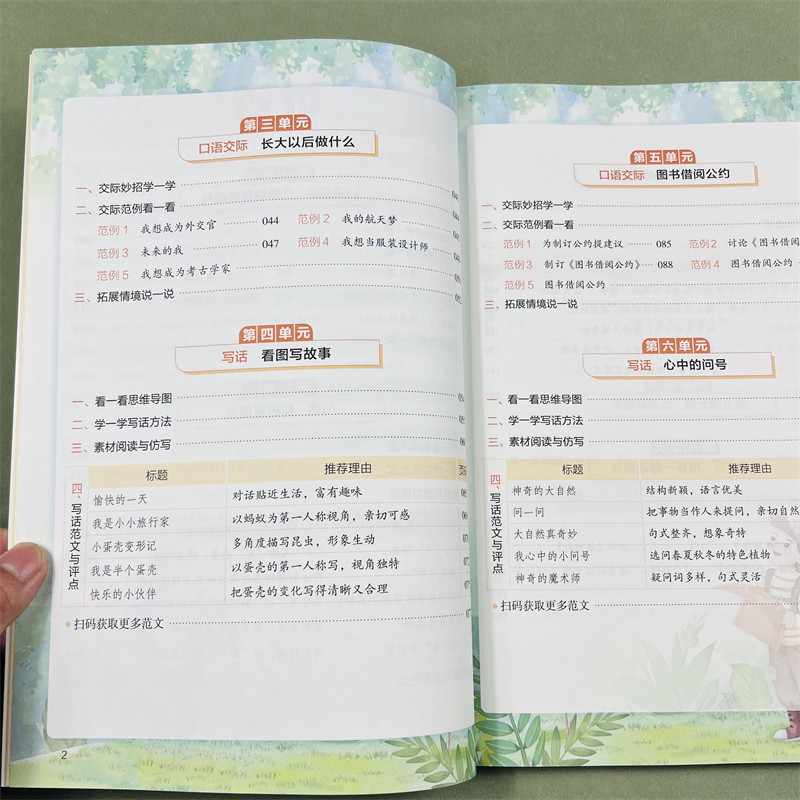 第三单元
口语交际 长大以后做什么
一、交际妙招学一学
二、交际范例看一看
范例1 我想成为外交官 044 范例2 我的航天梦
范例3 未来的我 047 范例4 我想当服装设计师
范例5 我想成为考古学家
三、拓展情境说一说
第四单元
写话 看图写故事
一、看一看思维导图
二、学一学写话方法
三、素材阅读与仿写
四、写话范文与评点
标题 推荐理由
愉快的一天 对话贴近生活，富有趣味
我是小小旅行家 以蚂蚁为第一人称视角，亲切可感
小蛋壳变形记 多角度描写昆虫，形象生动
我是半个蛋壳 以蛋壳的第一人称写，视角独特
快乐的小伙伴 把蛋壳的变化写得清晰又合理
·扫码获取更多范文
2
第五单元
口语交际 图书借阅公约
一、交际妙招学一学
二、交际范例看一看
范例1 为制订公约提建议 085 范例2 讨论《图书借阅
范例3 制订《图书借阅公约》 088 范例4 图书借阅公约
范例5 图书借阅公约
三、拓展情境说一说
第六单元
写话 心中的问号
一、看一看思维导图
二、学一学写话方法
三、素材阅读与仿写
四、写话范文与评点
标题 推荐理由
神奇的大自然 结构新颖，语言优美
问一问 把事物当作人来提问，亲切自然
大自然真奇妙 句式整齐，想象奇特
我心中的小问号 选问春夏秋冬的特色植物
神奇的魔术师 疑问词多样，句式灵活
·扫码获取更多范文